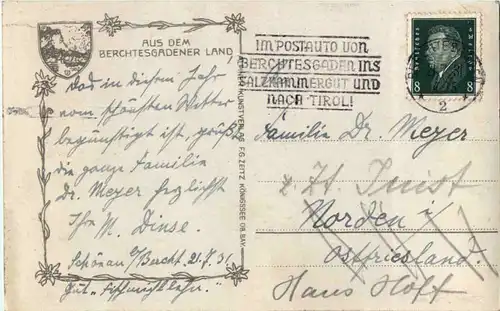 AUS DEM
BERCHTESGADENER LAND
Das in diesem Jahr
vom schönsten Wetter
begünstigt ist, grüßt
die ganze Familie
Dr. Meyer herzlichst
Ihr M. Dinse.
Schönau b/Bercht. 21.7.31.
KUNSTVERLAG F.G. ZEITZ, KÖNIGSSEE OB. BAY.
IM POSTAUTO VON
BERCHTESGADEN INS
SALZKAMMERGUT UND
NACH TIROL!
8 8
2
Familie Dr. Meyer
z. Zt. Juist
Norden i/
Ostfriesland.
Haus Höft